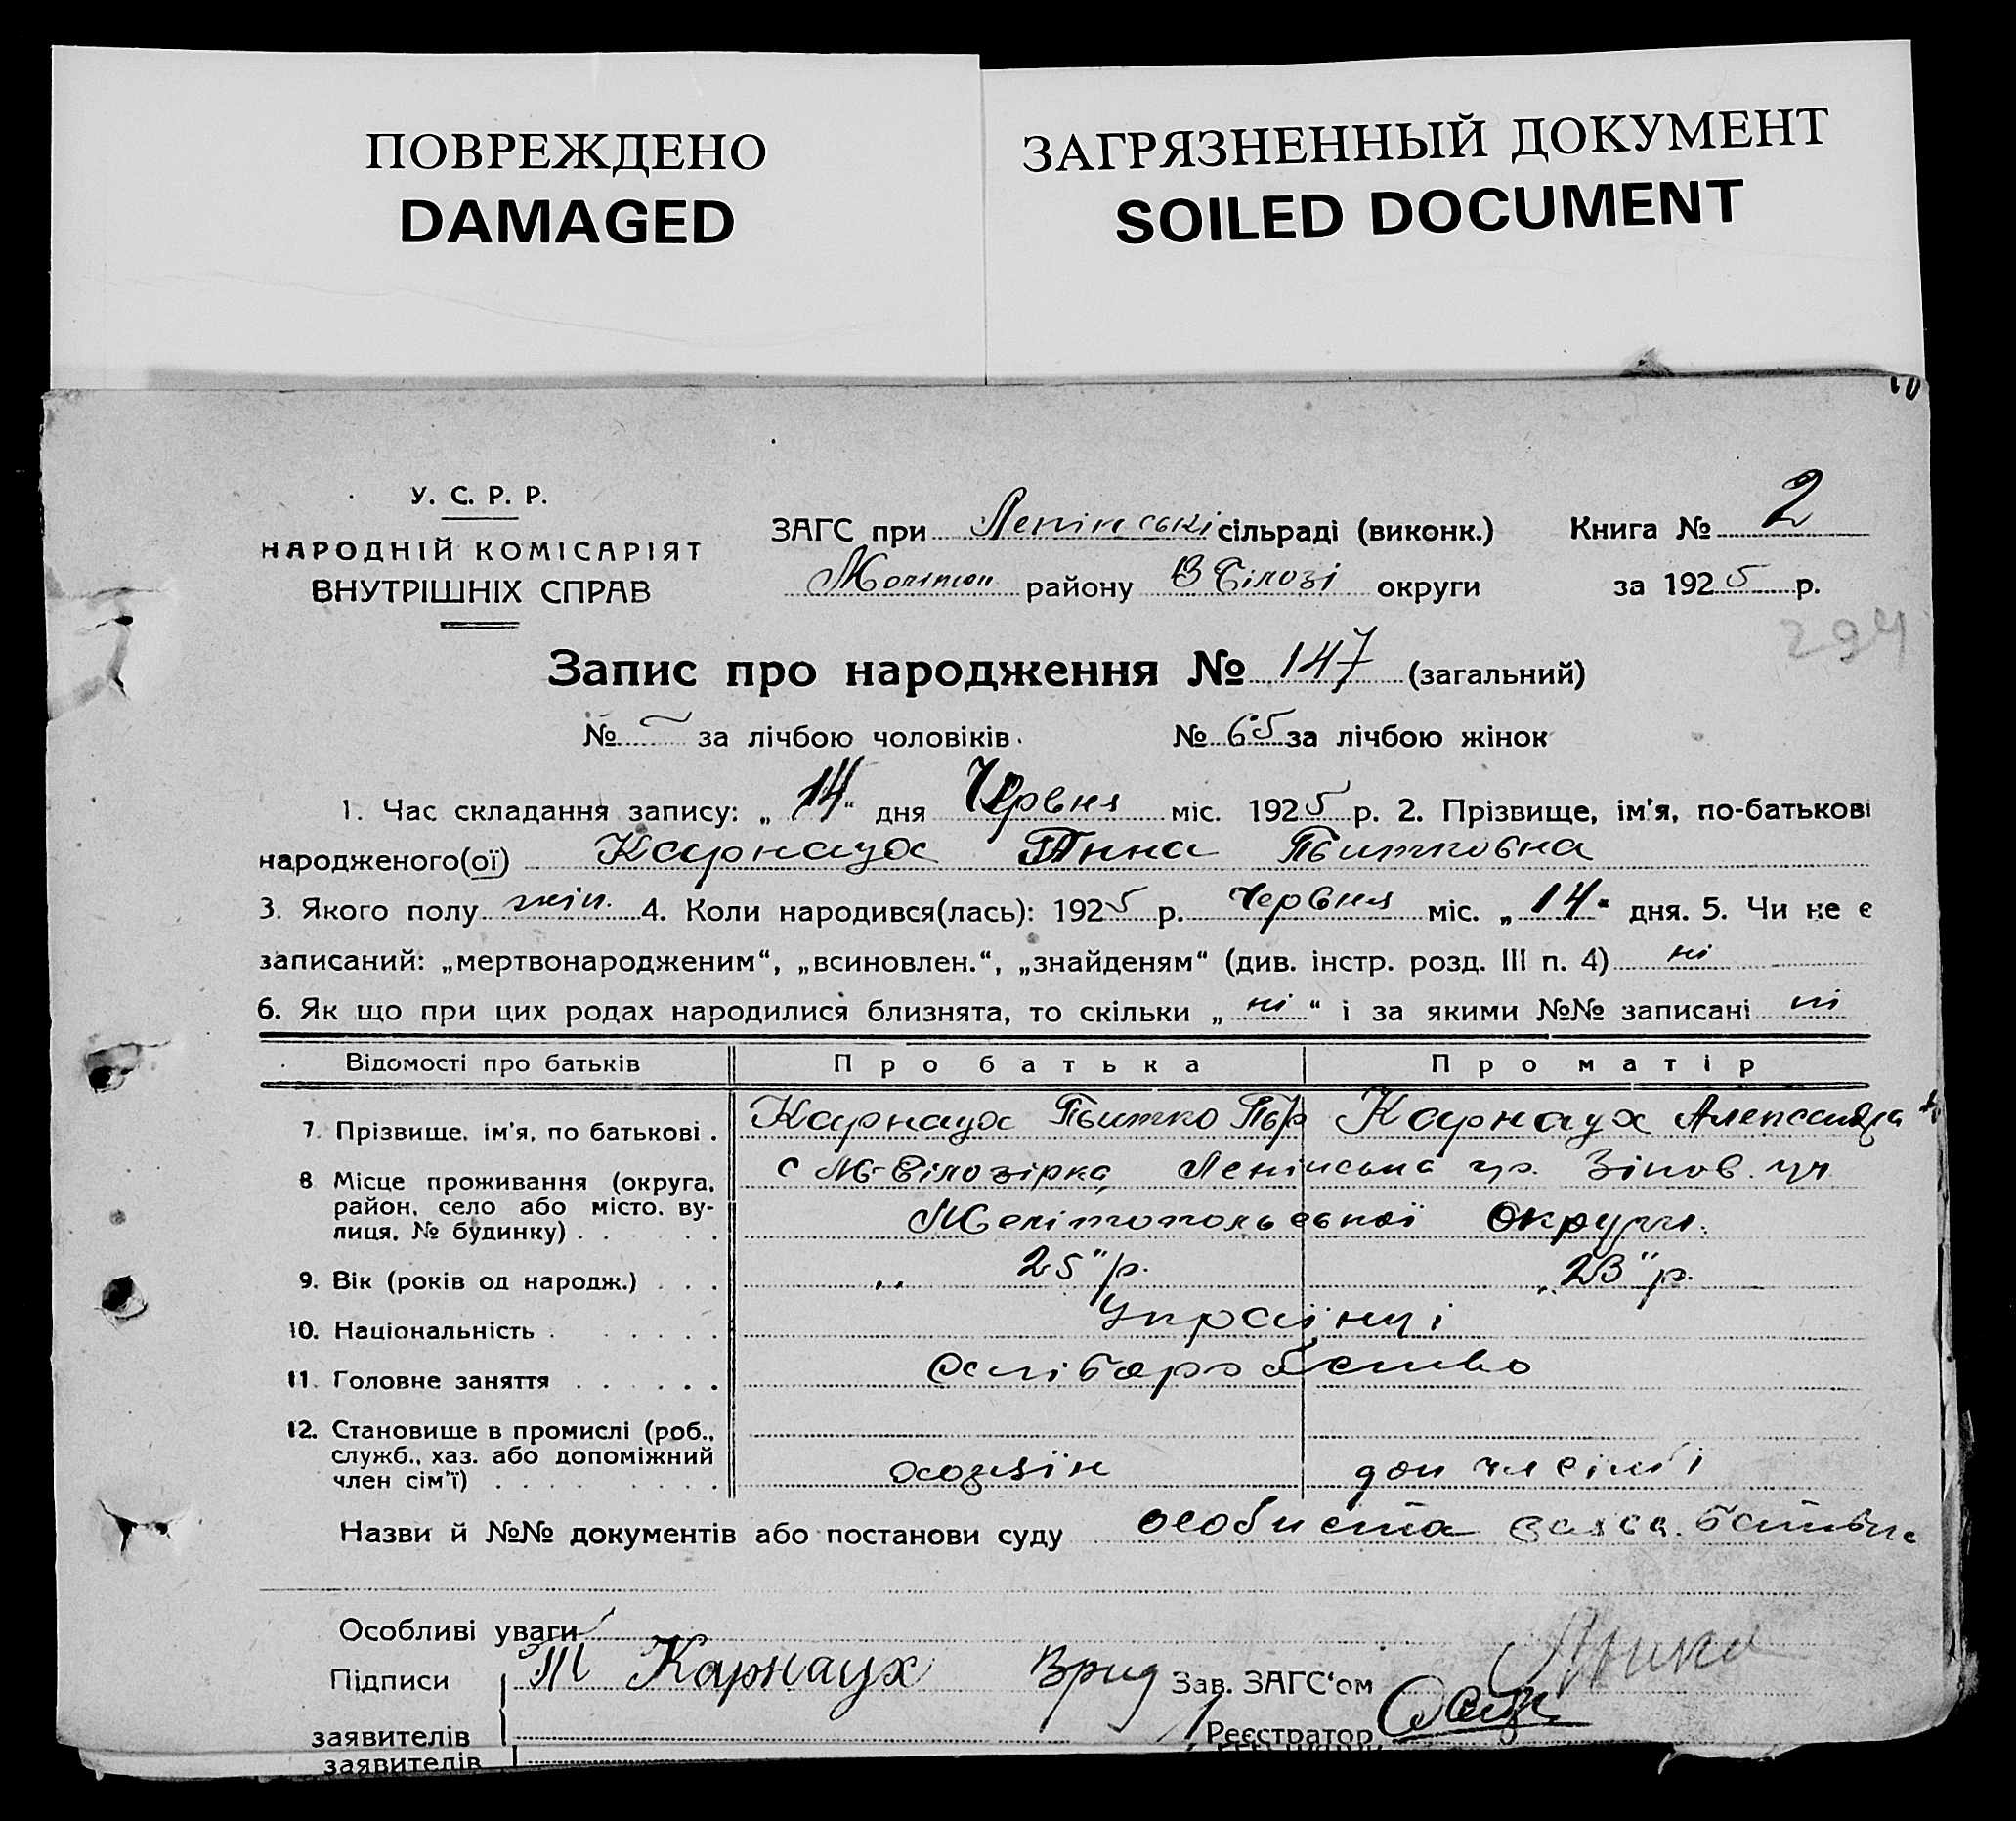 ПОВРЕЖДЕНО
DAMAGED
ЗАГРЯЗНЕННЫЙ ДОКУМЕНТ
SOILED DOCUMENT
У. С. Р. Р.
НАРОДНІЙ КОМІСАРІЯТ
ВНУТРІШНІХ СПРАВ
ЗАГС при Ленінські сільраді (виконк.) Книга № 2
Мелітоп району В Білозі округи за 1925 р.
294
Запис про народження № 147 (загальний)
№ — за лічбою чоловіків. № 65 за лічбою жінок
1. Час складання запису: „ 14 “ дня Червня міс. 1925 р. 2. Прізвище, ім'я, по-батькові
народженого(ої) Карнаух Анна
3. Якого полу жін. 4. Коли народився(лась): 1925 р. Червня міс. „ 14 “ дня. 5. Чи не є
записаний: „мертвонародженим“, „всиновлен.“, „знайденям“ (див. інстр. розд. III п. 4) ні
6. Як що при цих родах народилися близнята, то скільки „ ні “ і за якими №№ записані ні
Відомості про батьків Про батька Про матір
7. Прізвище, ім'я, по батькові . Карнаух Карнаух Александра
8 Місце проживання (округа, с М-Білозірка, Ленінська
район, село або місто, ву-
лиця, № будинку) . . . . . . Мелітопольської округи.
9. Вік (років од народж.) . . . „ 25 " р. „ 23 " р.
10. Національність . . . . . . . Українці
11. Головне заняття . . . . . .
12. Становище в промислі (роб.,
служб., хаз. або допоміжний
член сім'ї) . . . . . . . . хазяїн доп чл сімї
Назви й №№ документів або постанови суду особиста заява батьк
Особливі уваги
Підписи Карнаух Врид Зав. ЗАГС'ом
заявителів Реєстратор
заявителів